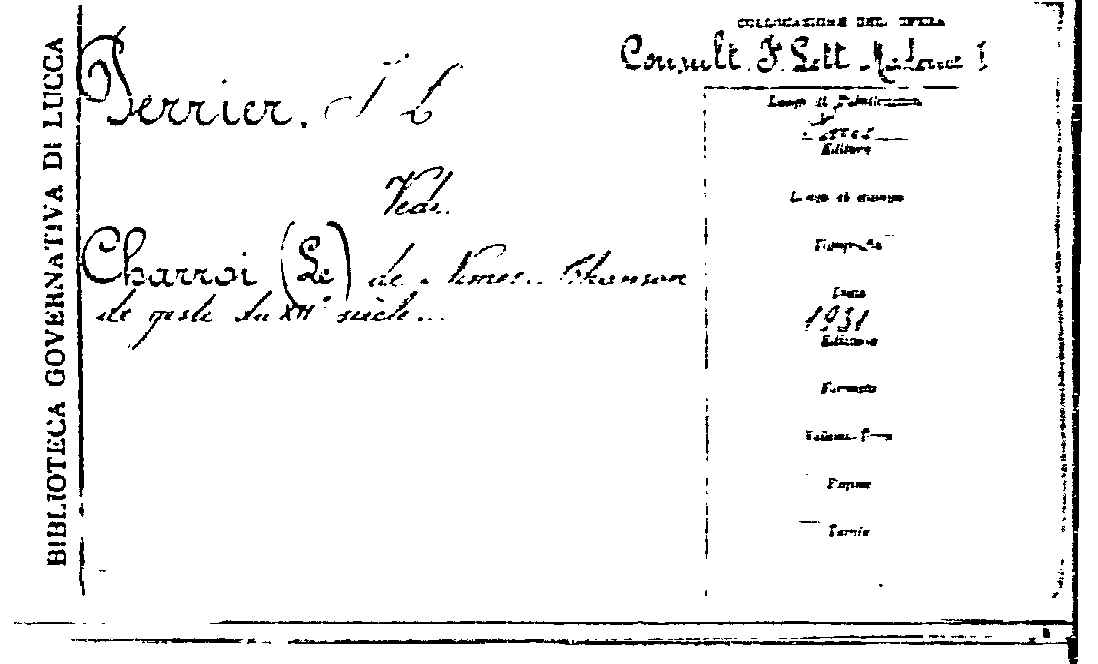 BIBLIOTECA GOVERNATIVA DI LUCCA
COLLOCAZIONE DELL'OPERA
Consult. F. Lett.
Perrier. J L
Vedi.
Charroi (Le) de Nîmes. Chanson
de geste du XIIe siècle...
Luogo di Pubblicazione
Editore
Luogo di stampa
Tipografia
Data
1931
Edizione
Formato
Volumi
Pagine
Tavole